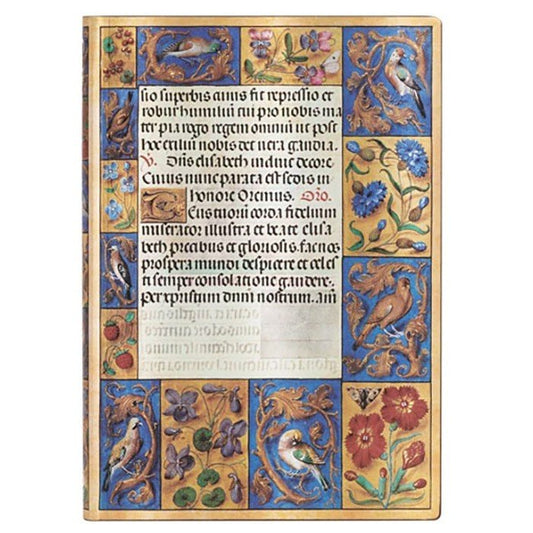 sio superbis cuius fit repressio et
robur humilium cui pro nobis ma
ter pia rogo regem omnium ut post
hoc exilium nobis det vera gaudia.
V. Diis elisabeth in diuic decore
Cuius nunc parata est sedis in
honore Oremus. Oro.
Eus tuorum corda fidelium
miserator illustra et beate elisa
beth precabus et gloriosis. fac nos
prospera mundi despicere et celes
ti semper consolatione gaudere.
per xpristum dnm nostrum. am